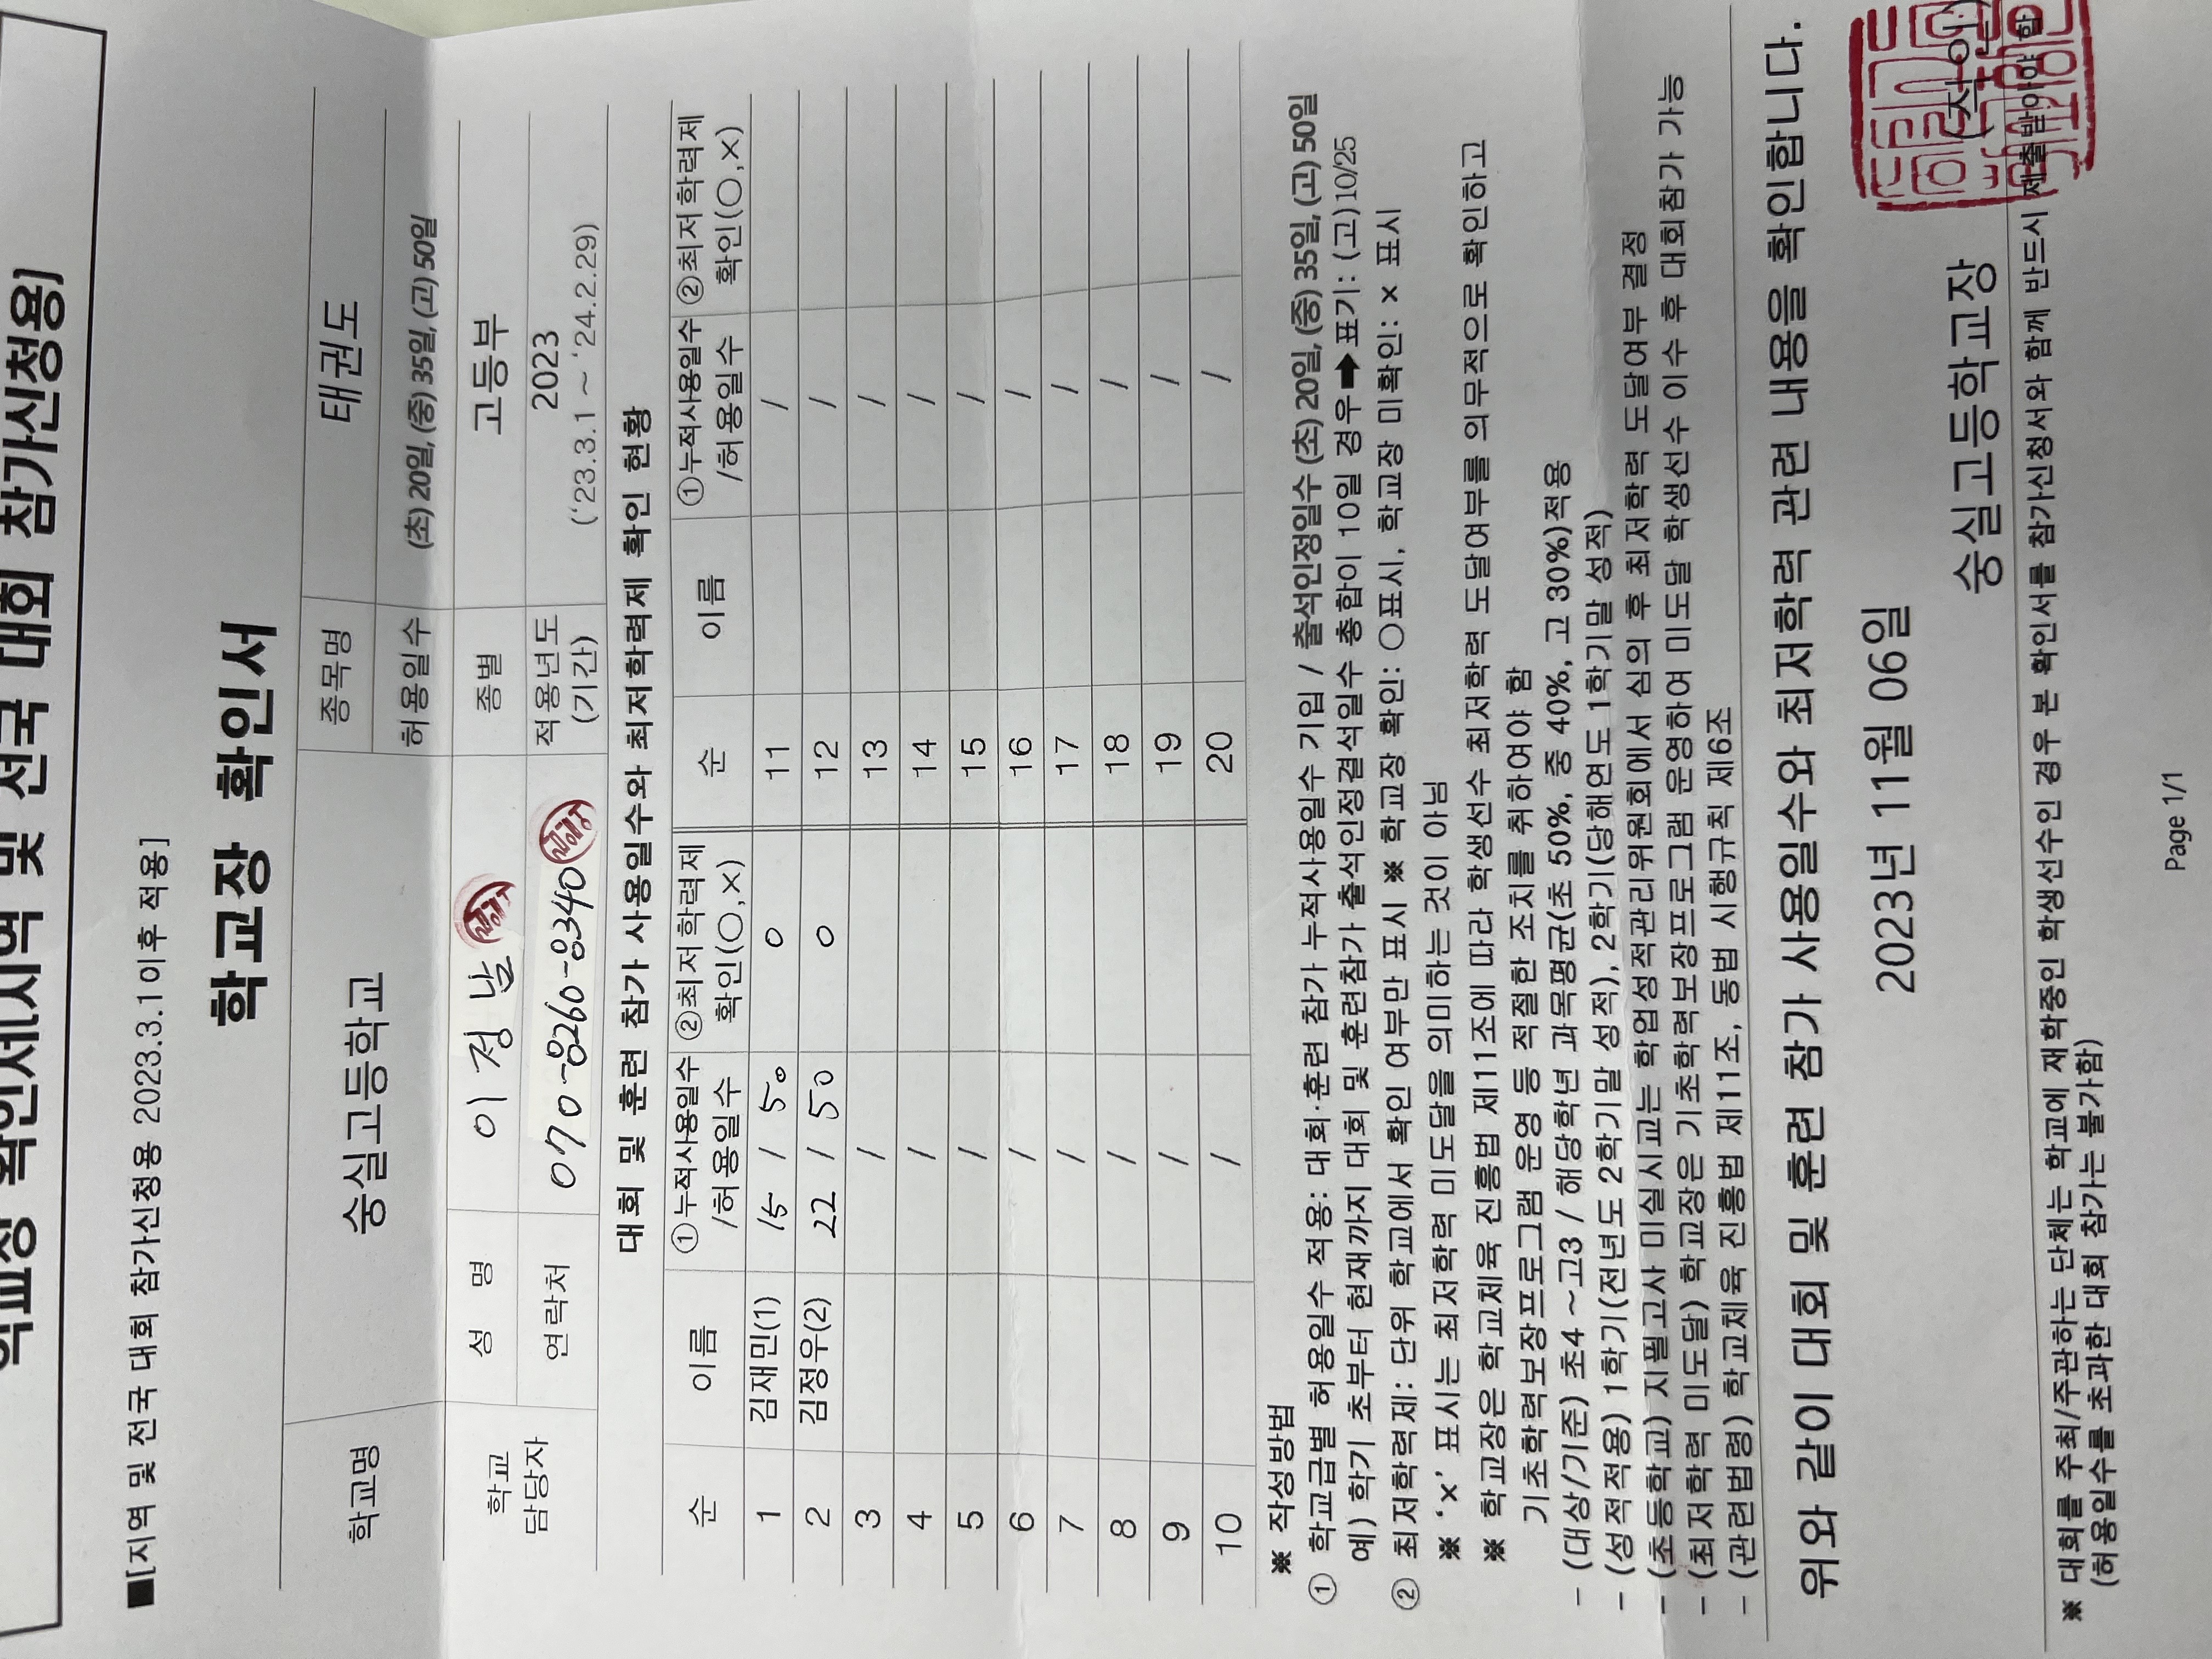 학교장 확인서(지역 및 전국 대회 참가신청용)
■[지역 및 전국 대회 참가신청용 2023.3.1이후 적용]
학교장 확인서
학교명 숭실고등학교 종목명 태권도
허용일수 (초) 20일, (중) 35일, (고) 50일
학교 담당자 성 명 이정남 종별 고등부
연락처 070-8260-8340 적용년도 (기간) 2023 ('23.3.1 ~ '24.2.29)
대회 및 훈련 참가 사용일수와 최저학력제 확인 현황
순 이름 ①누적사용일수 /허용일수 ②최저학력제 확인(○,×) 순 이름 ①누적사용일수 /허용일수 ②최저학력제 확인(○,×)
1 김재민(1) 15 / 50 ○ 11 /
2 김정우(2) 22 / 50 ○ 12 /
3 / 13 /
4 / 14 /
5 / 15 /
6 / 16 /
7 / 17 /
8 / 18 /
9 / 19 /
10 / 20 /
※ 작성방법
① 학교급별 허용일수 적용: 대회·훈련 참가 누적사용일수 기입 / 출석인정일수 (초) 20일, (중) 35일, (고) 50일
예) 학기 초부터 현재까지 대회 및 훈련참가 출석인정결석일수 총합이 10일 경우➡표기: (고)10/25
② 최저학력제: 단위 학교에서 확인 여부만 표시 ※ 학교장 확인: ○표시, 학교장 미확인: × 표시
※ '×' 표시는 최저학력 미도달을 의미하는 것이 아님
※ 학교장은 학교체육 진흥법 제11조에 따라 학생선수 최저학력 도달여부를 의무적으로 확인하고
기초학력보장프로그램 운영 등 적절한 조치를 취하여야 함
- (대상/기준) 초4 ~고3 / 해당학년 과목평균(초 50%, 중 40%, 고 30%)적용
- (성적적용) 1학기(전년도 2학기말 성적), 2학기(당해연도 1학기말 성적)
- (초등학교) 지필고사 미실시교는 학업성적관리위원회에서 심의 후 최저학력 도달여부 결정
- (최저학력 미도달) 학교장은 기초학력보장프로그램 운영하여 미도달 학생선수 이수 후 대회참가 가능
- (관련법령) 학교체육 진흥법 제11조, 동법 시행규칙 제6조
위와 같이 대회 및 훈련 참가 사용일수와 최저학력 관련 내용을 확인합니다.
2023년 11월 06일
숭실고등학교장 (직인)
※ 대회를 주최/주관하는 단체는 학교에 재학중인 학생선수인 경우 본 확인서를 참가신청서와 함께 반드시 제출받아야 함
(허용일수를 초과한 대회 참가는 불가함)
Page 1/1